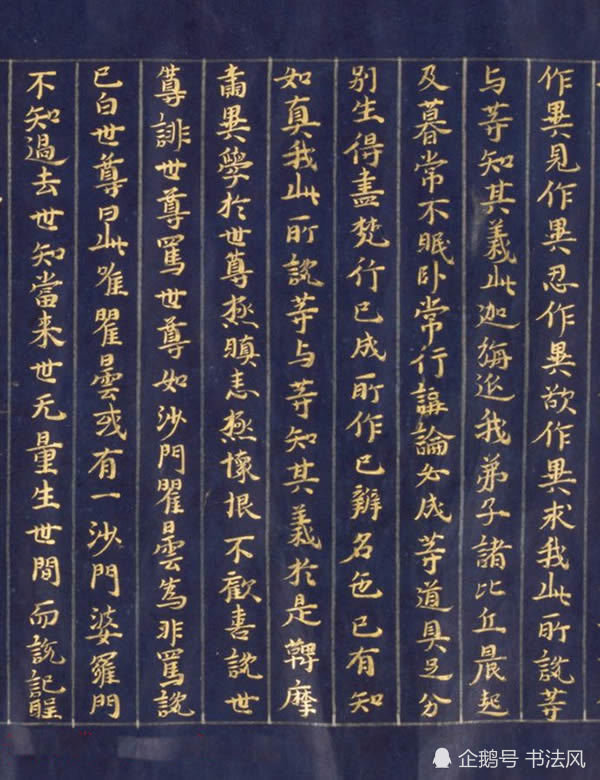 作異見作異忍作異欲作異求我此所說等
与等知其義此迦旃延我弟子諸比丘晨起
及暮常不眠卧常行講論必成等道具足分
别生得盡梵行已成所作已辦名色已有知
如真我此所說等与等知其義於是鞞摩
肅異學於世尊極瞋恚極懷恨不歡喜說世
尊誹世尊罵世尊如沙門瞿曇為非罵說
已白世尊曰此唯瞿曇或有一沙門婆羅門
不知過去世知當来世无量生世間而說記
企鹅号 书法风